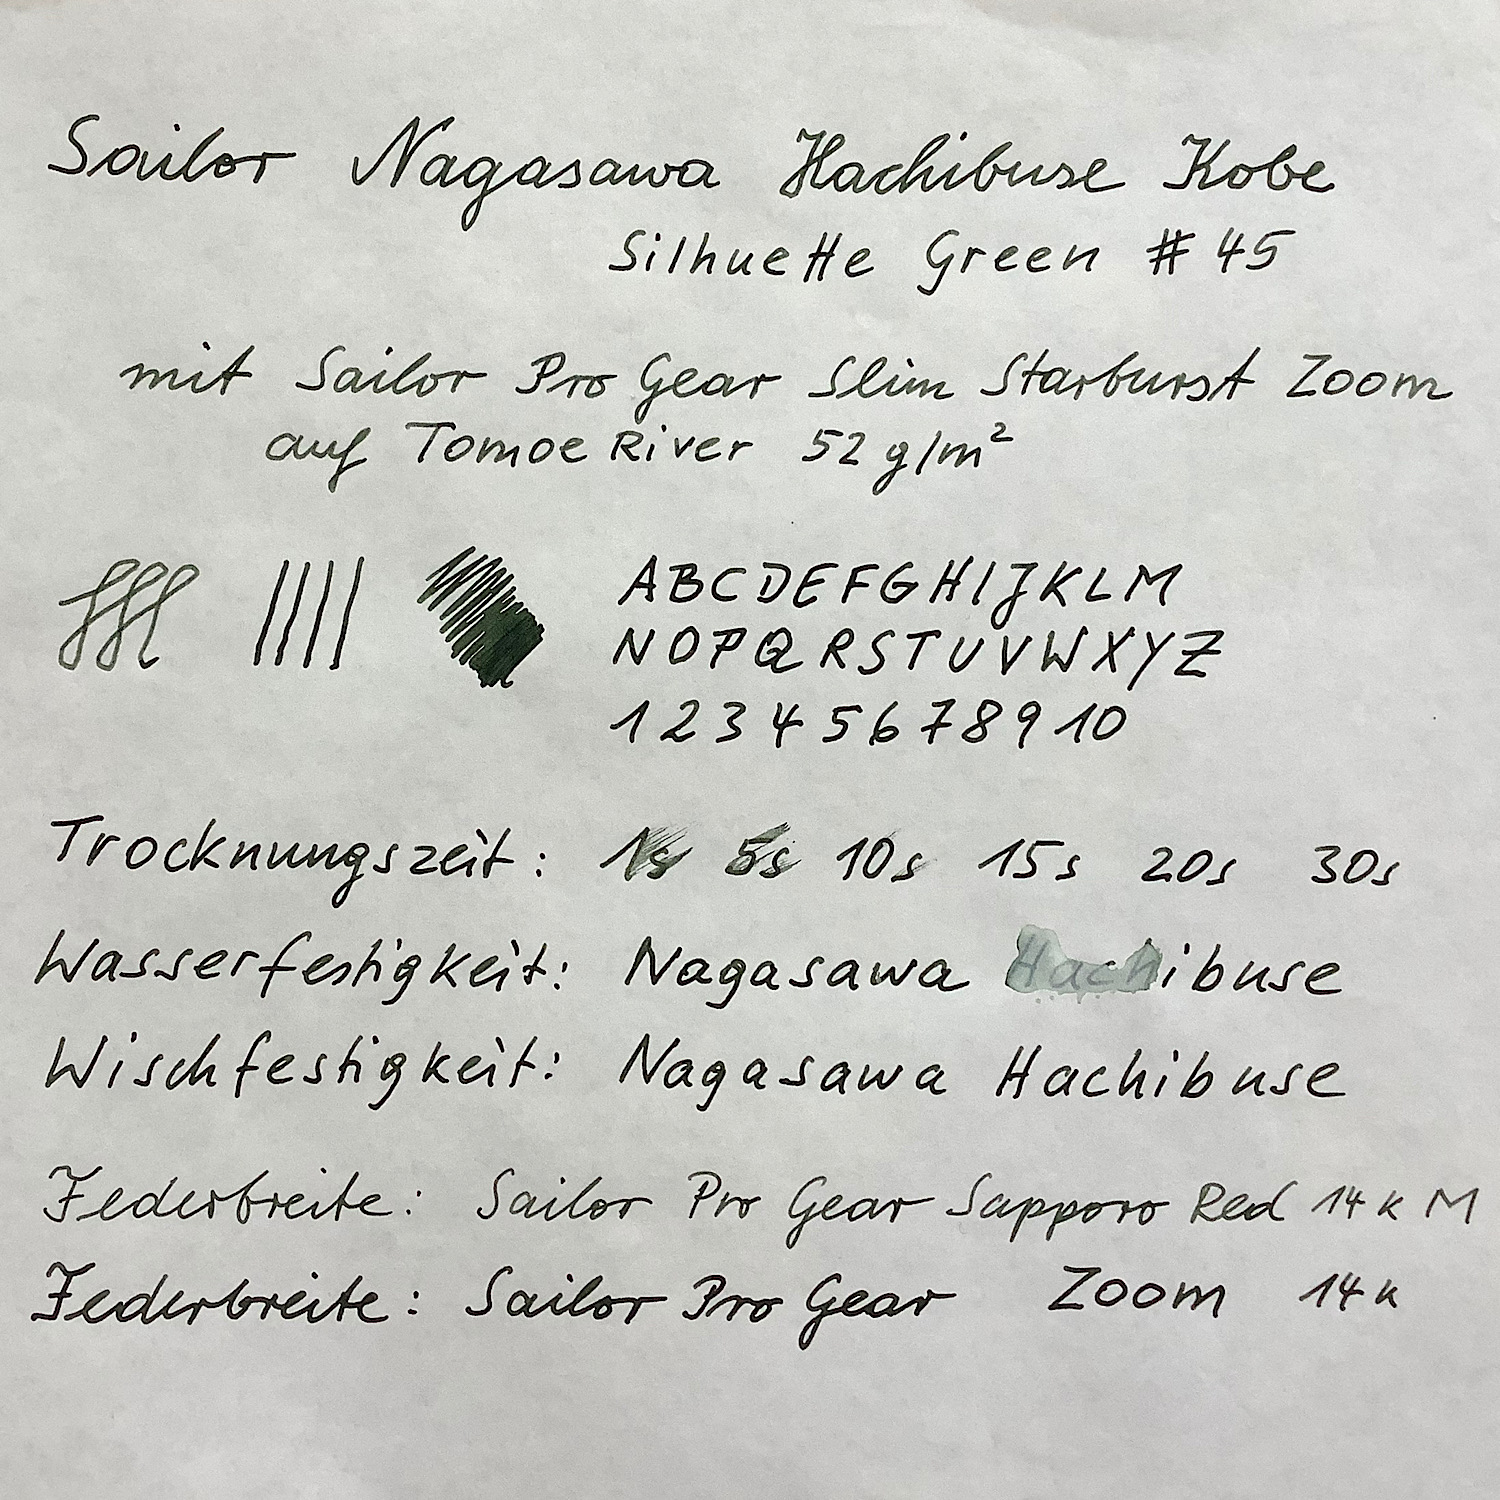 Sailor Nagasawa Hachibuse Kobe
Silhuette Green #45
mit Sailor Pro Gear Slim Starburst Zoom
auf Tomoe River 52 g/m²
ABCDEFGHIJKLM
NOPQRSTUVWXYZ
1 2 3 4 5 6 7 8 9 10
Trocknungszeit: 1s 5s 10s 15s 20s 30s
Wasserfestigkeit: Nagasawa Hachibuse
Wischfestigkeit: Nagasawa Hachibuse
Federbreite: Sailor Pro Gear Sapporo Red 14k M
Federbreite: Sailor Pro Gear Zoom 14k